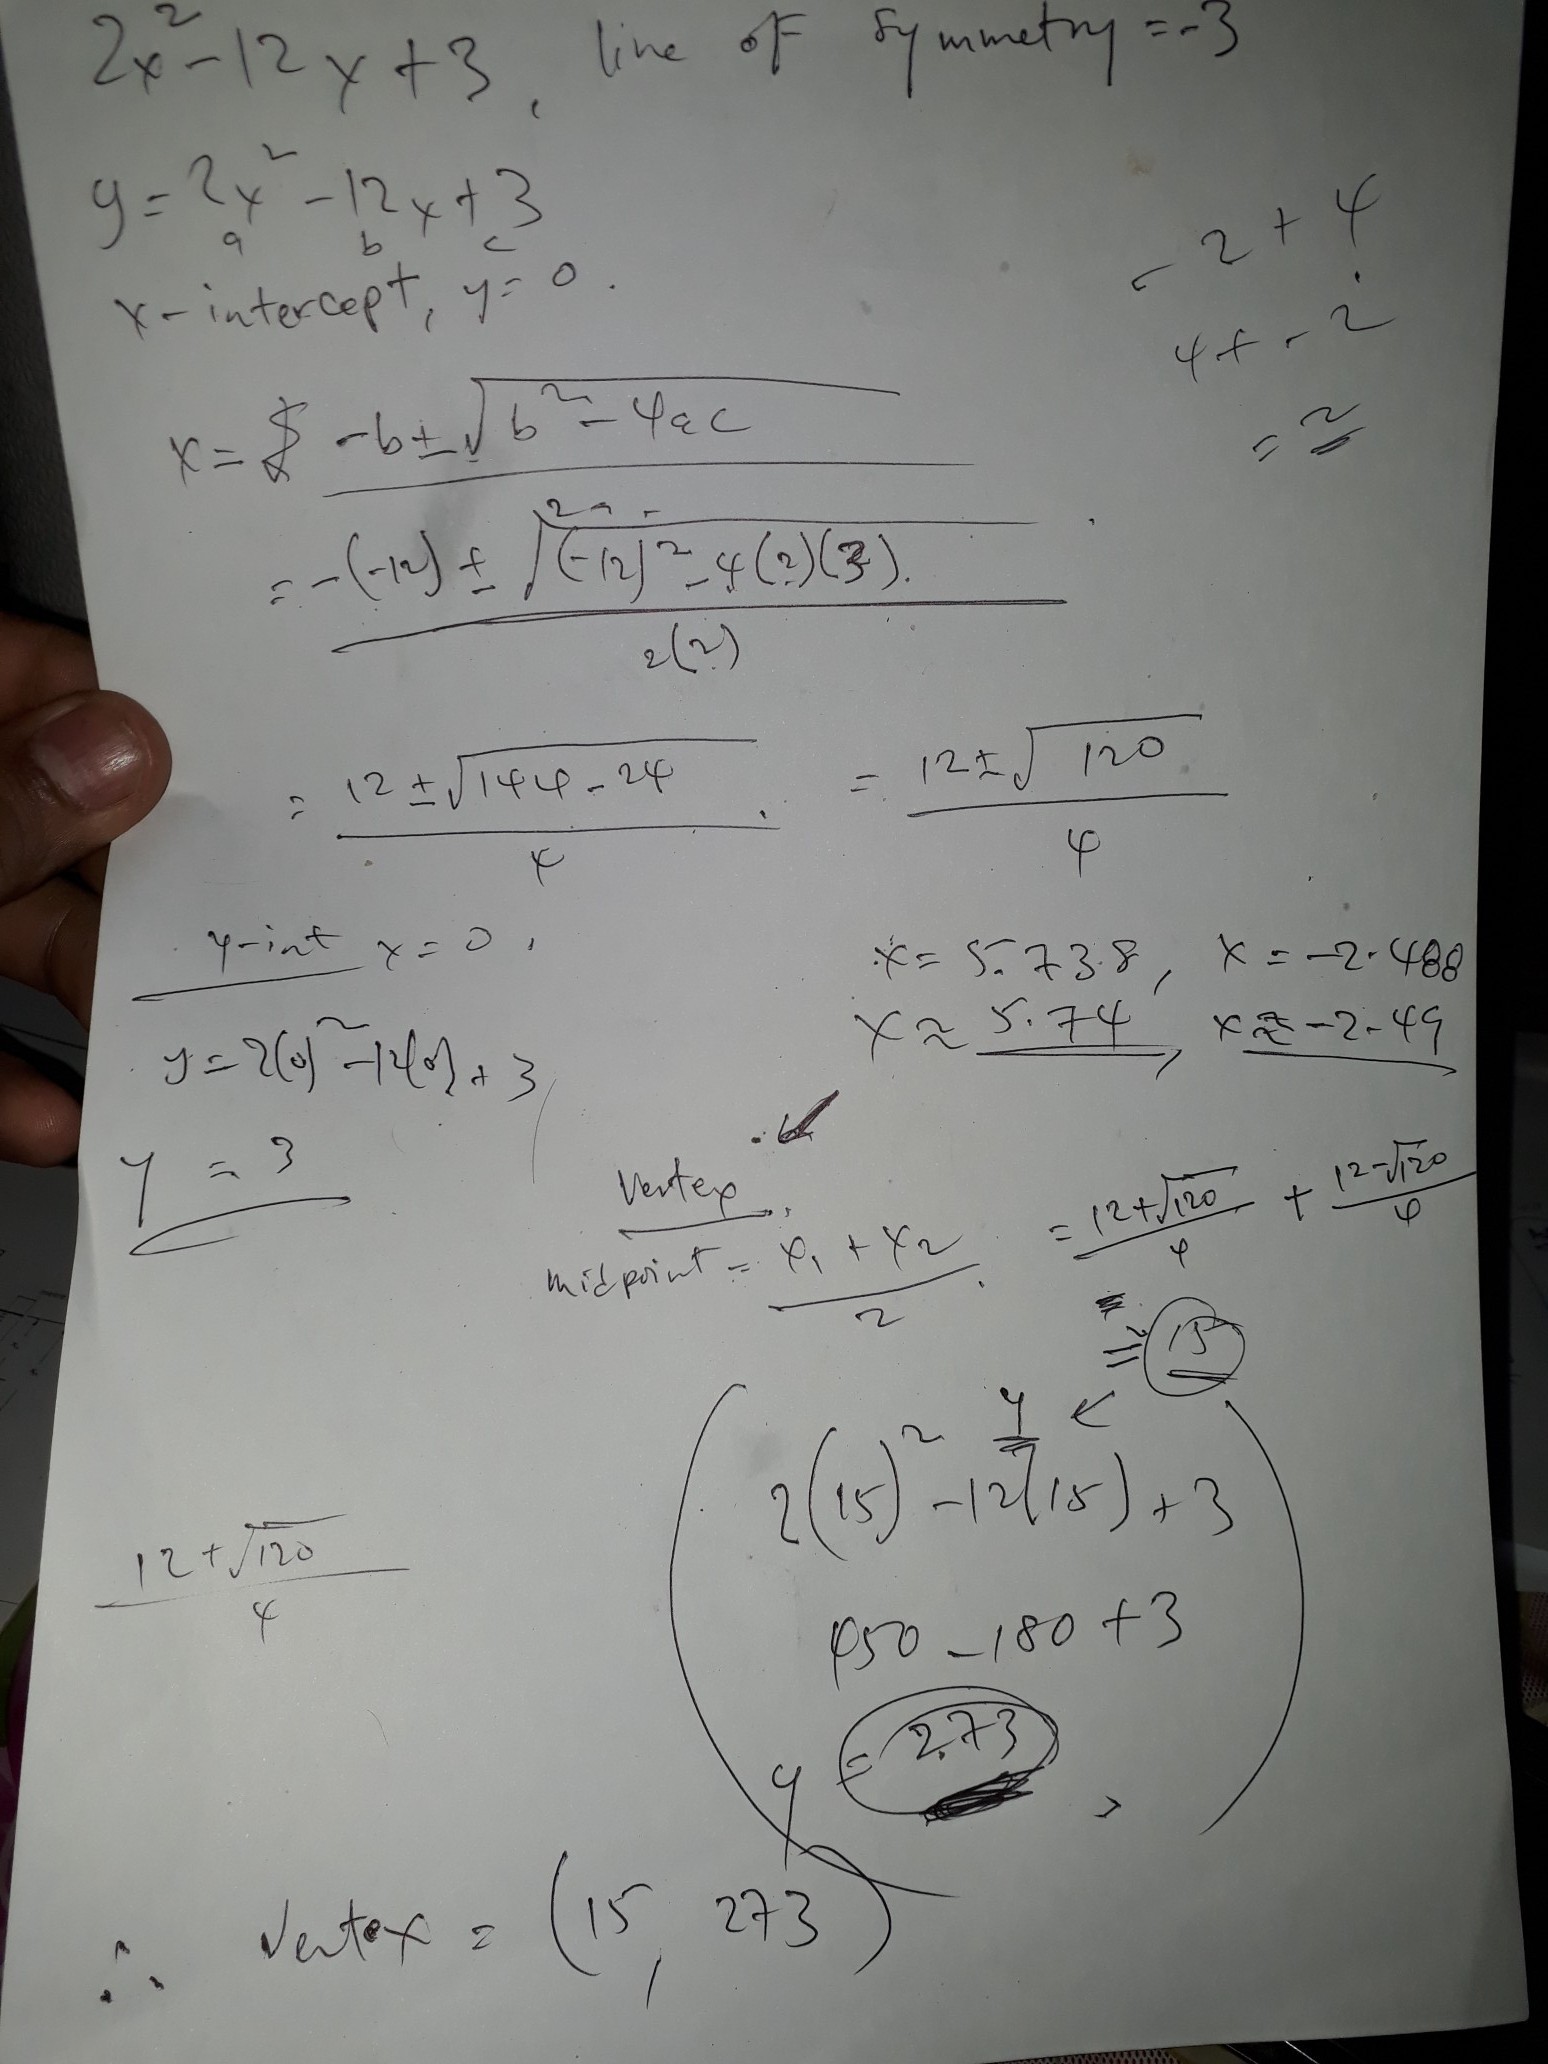 2x² - 12x + 3, line of symmetry = -3
y = 2x² - 12x + 3
a b c
x-intercept, y = 0.
- 2 + 4
4 + - 2
= 2
x = -b ± √b² - 4ac
2a
= -(-12) ± √(-12)² - 4(2)(3).
2(2)
= 12 ± √144 - 24 = 12 ± √120
4 4
y-int x = 0,
x = 5.738, x = -2.488
x ≈ 5.74, x ≈ -2.49
y = 2(0)² - 12(0) + 3
y = 3
Vertex
midpoint = x₁ + x₂ = 12 + √120 + 12 - √120
2 4 4
2
= 15
y ←
2(15)² - 12(15) + 3
450 - 180 + 3
y = 273,
12 + √120
4
∴ Vertex = (15, 273)